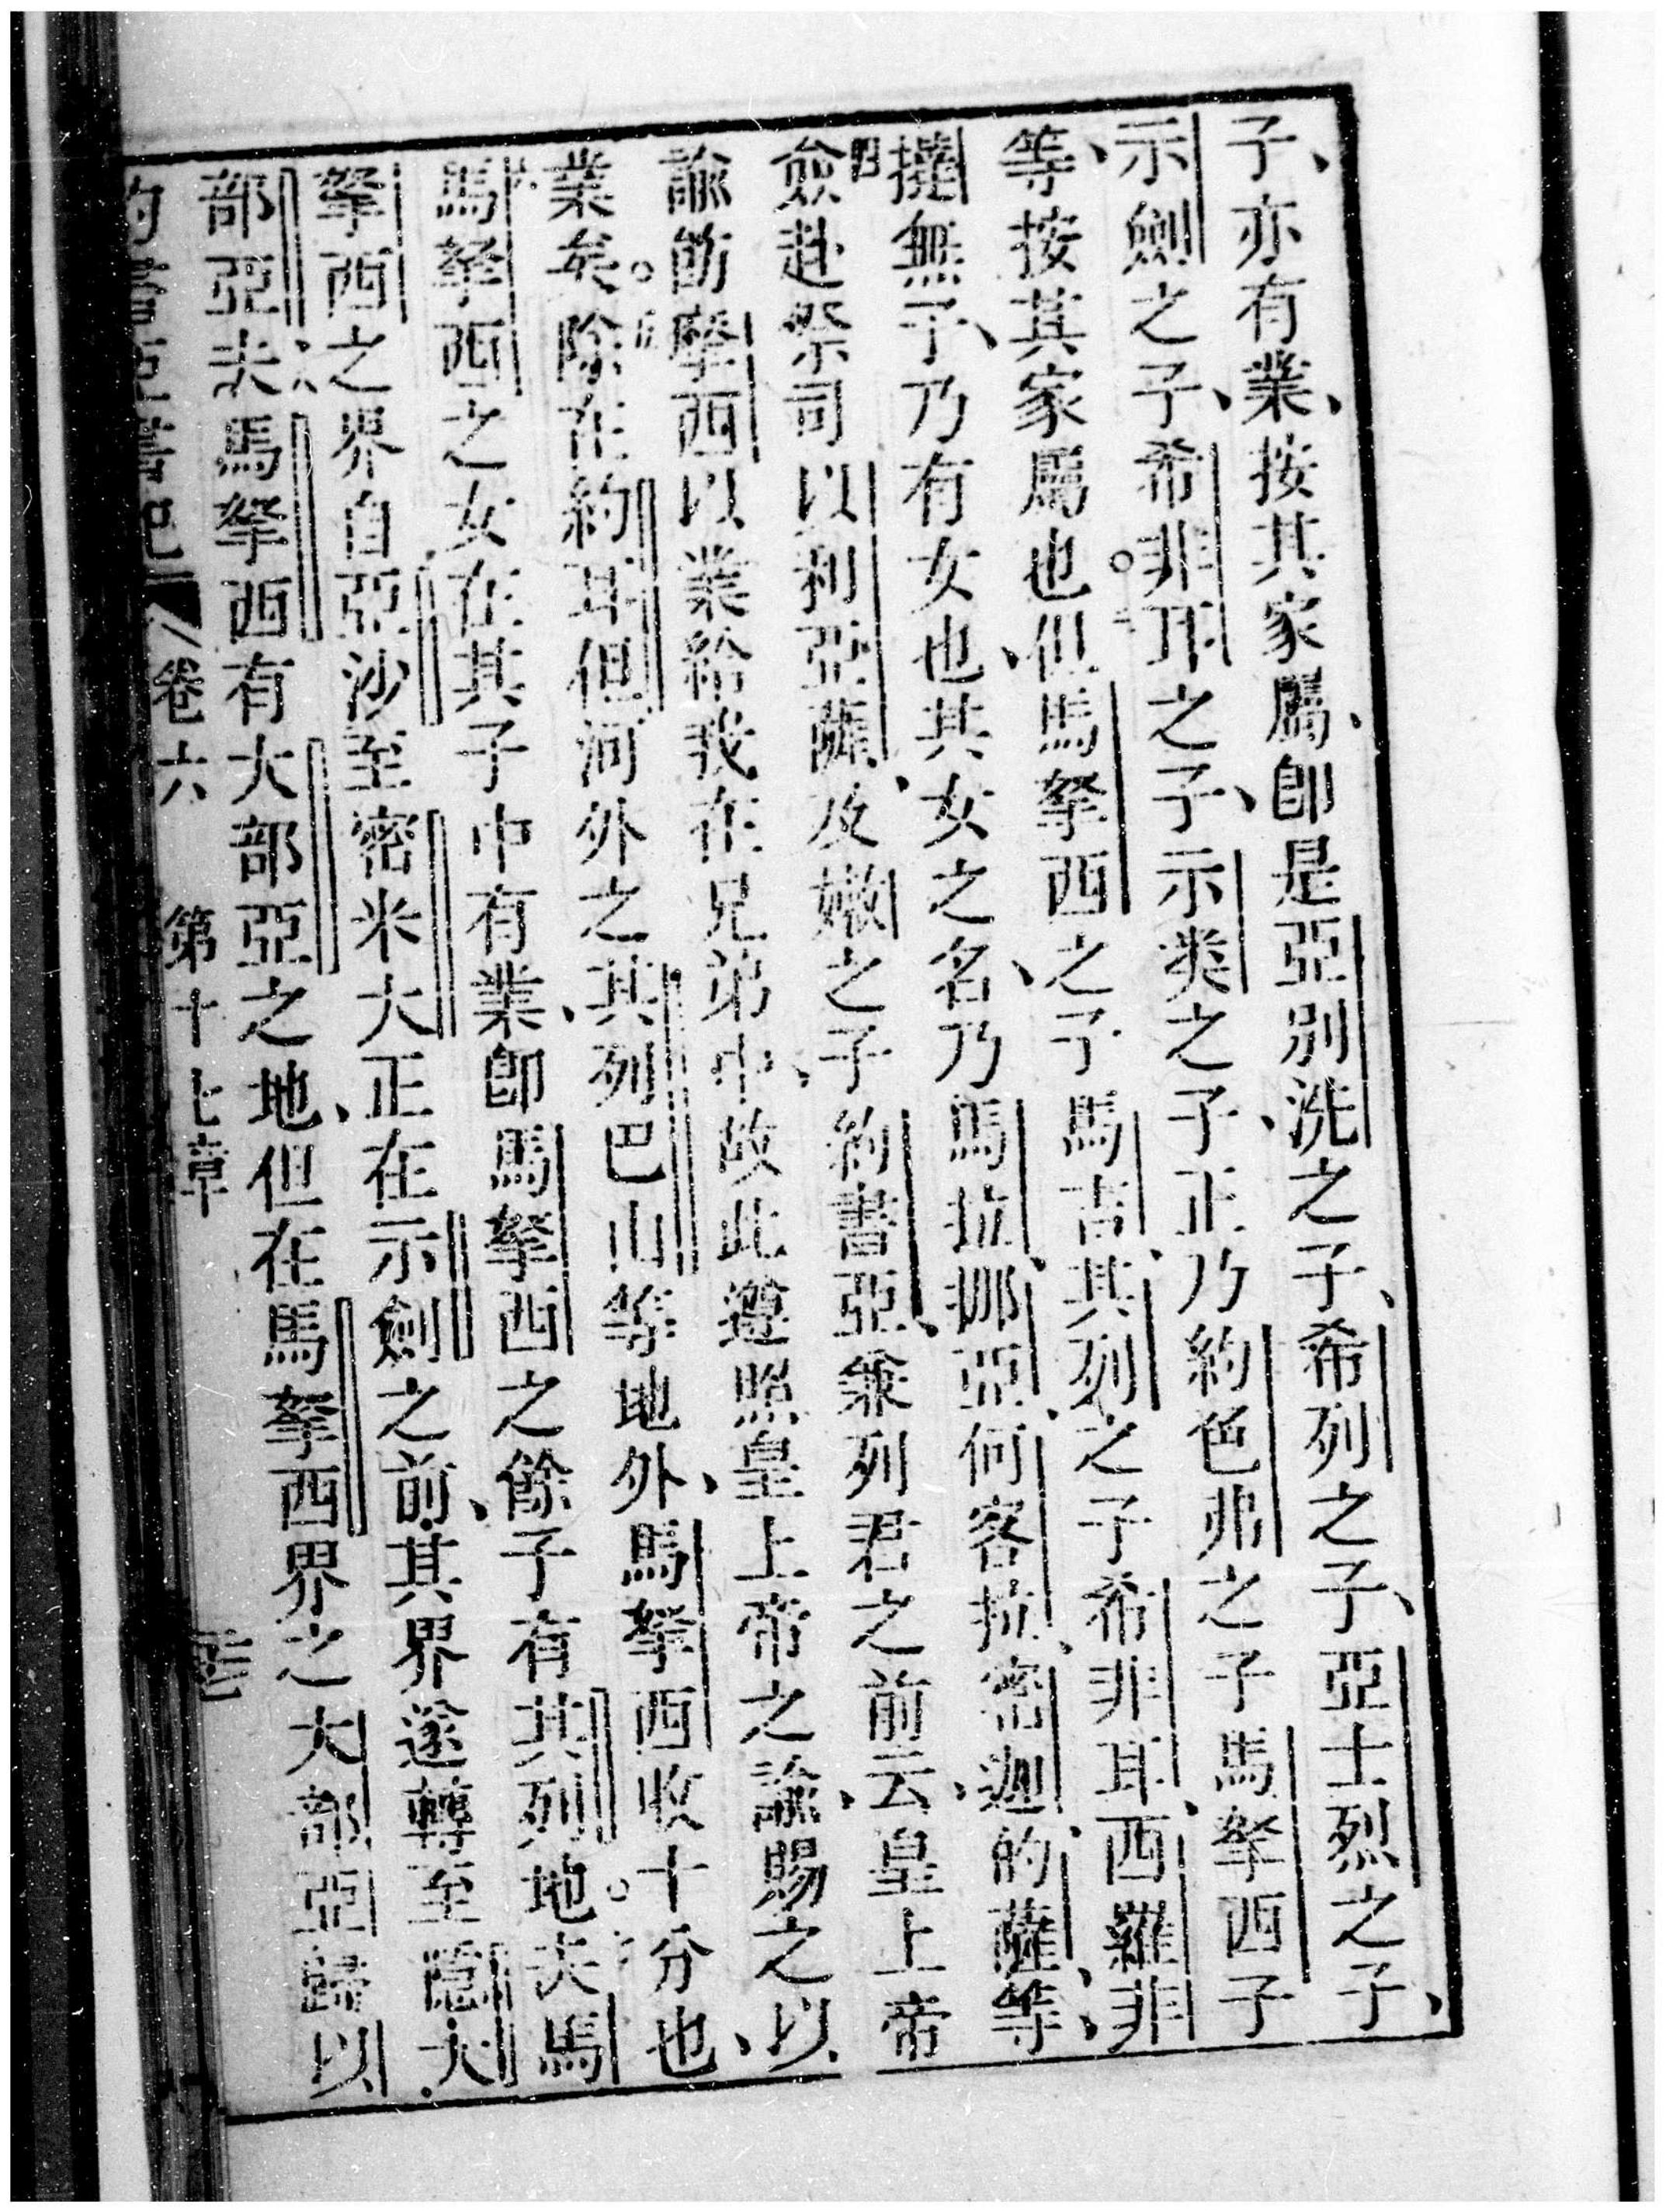 子、亦有業、按其家屬、卽是亞別洗之子、希列之子、亞士烈之子、
示劍之子、希非耳之子、示㷸之子、正乃約色弗之子馬拏西子
等、按其家屬也。但馬拏西之子馬吉、其列之子希非耳、西羅非
㨻無子、乃有女也、其女之名、乃馬拉、挪亞、何客拉、密迦、的薩等、
僉赴祭司以利亞薩、及嫩之子約書亞、兼列君之前云、皇上帝
諭飭摩西以業給我在兄弟中、故此遵照皇上帝之諭、賜之以
業矣。除在約耳但河外之其列巴山等地外、馬拏西收十分也、
馬拏西之女在其子中有業、卽馬拏西之餘子有其列地。夫馬
拏西之界自亞沙至密米大正在示劍之前、其界遂轉至隱大
部亞、夫馬拏西有大部亞之地、但在馬拏西界之大部亞歸以
卷六 第十七章